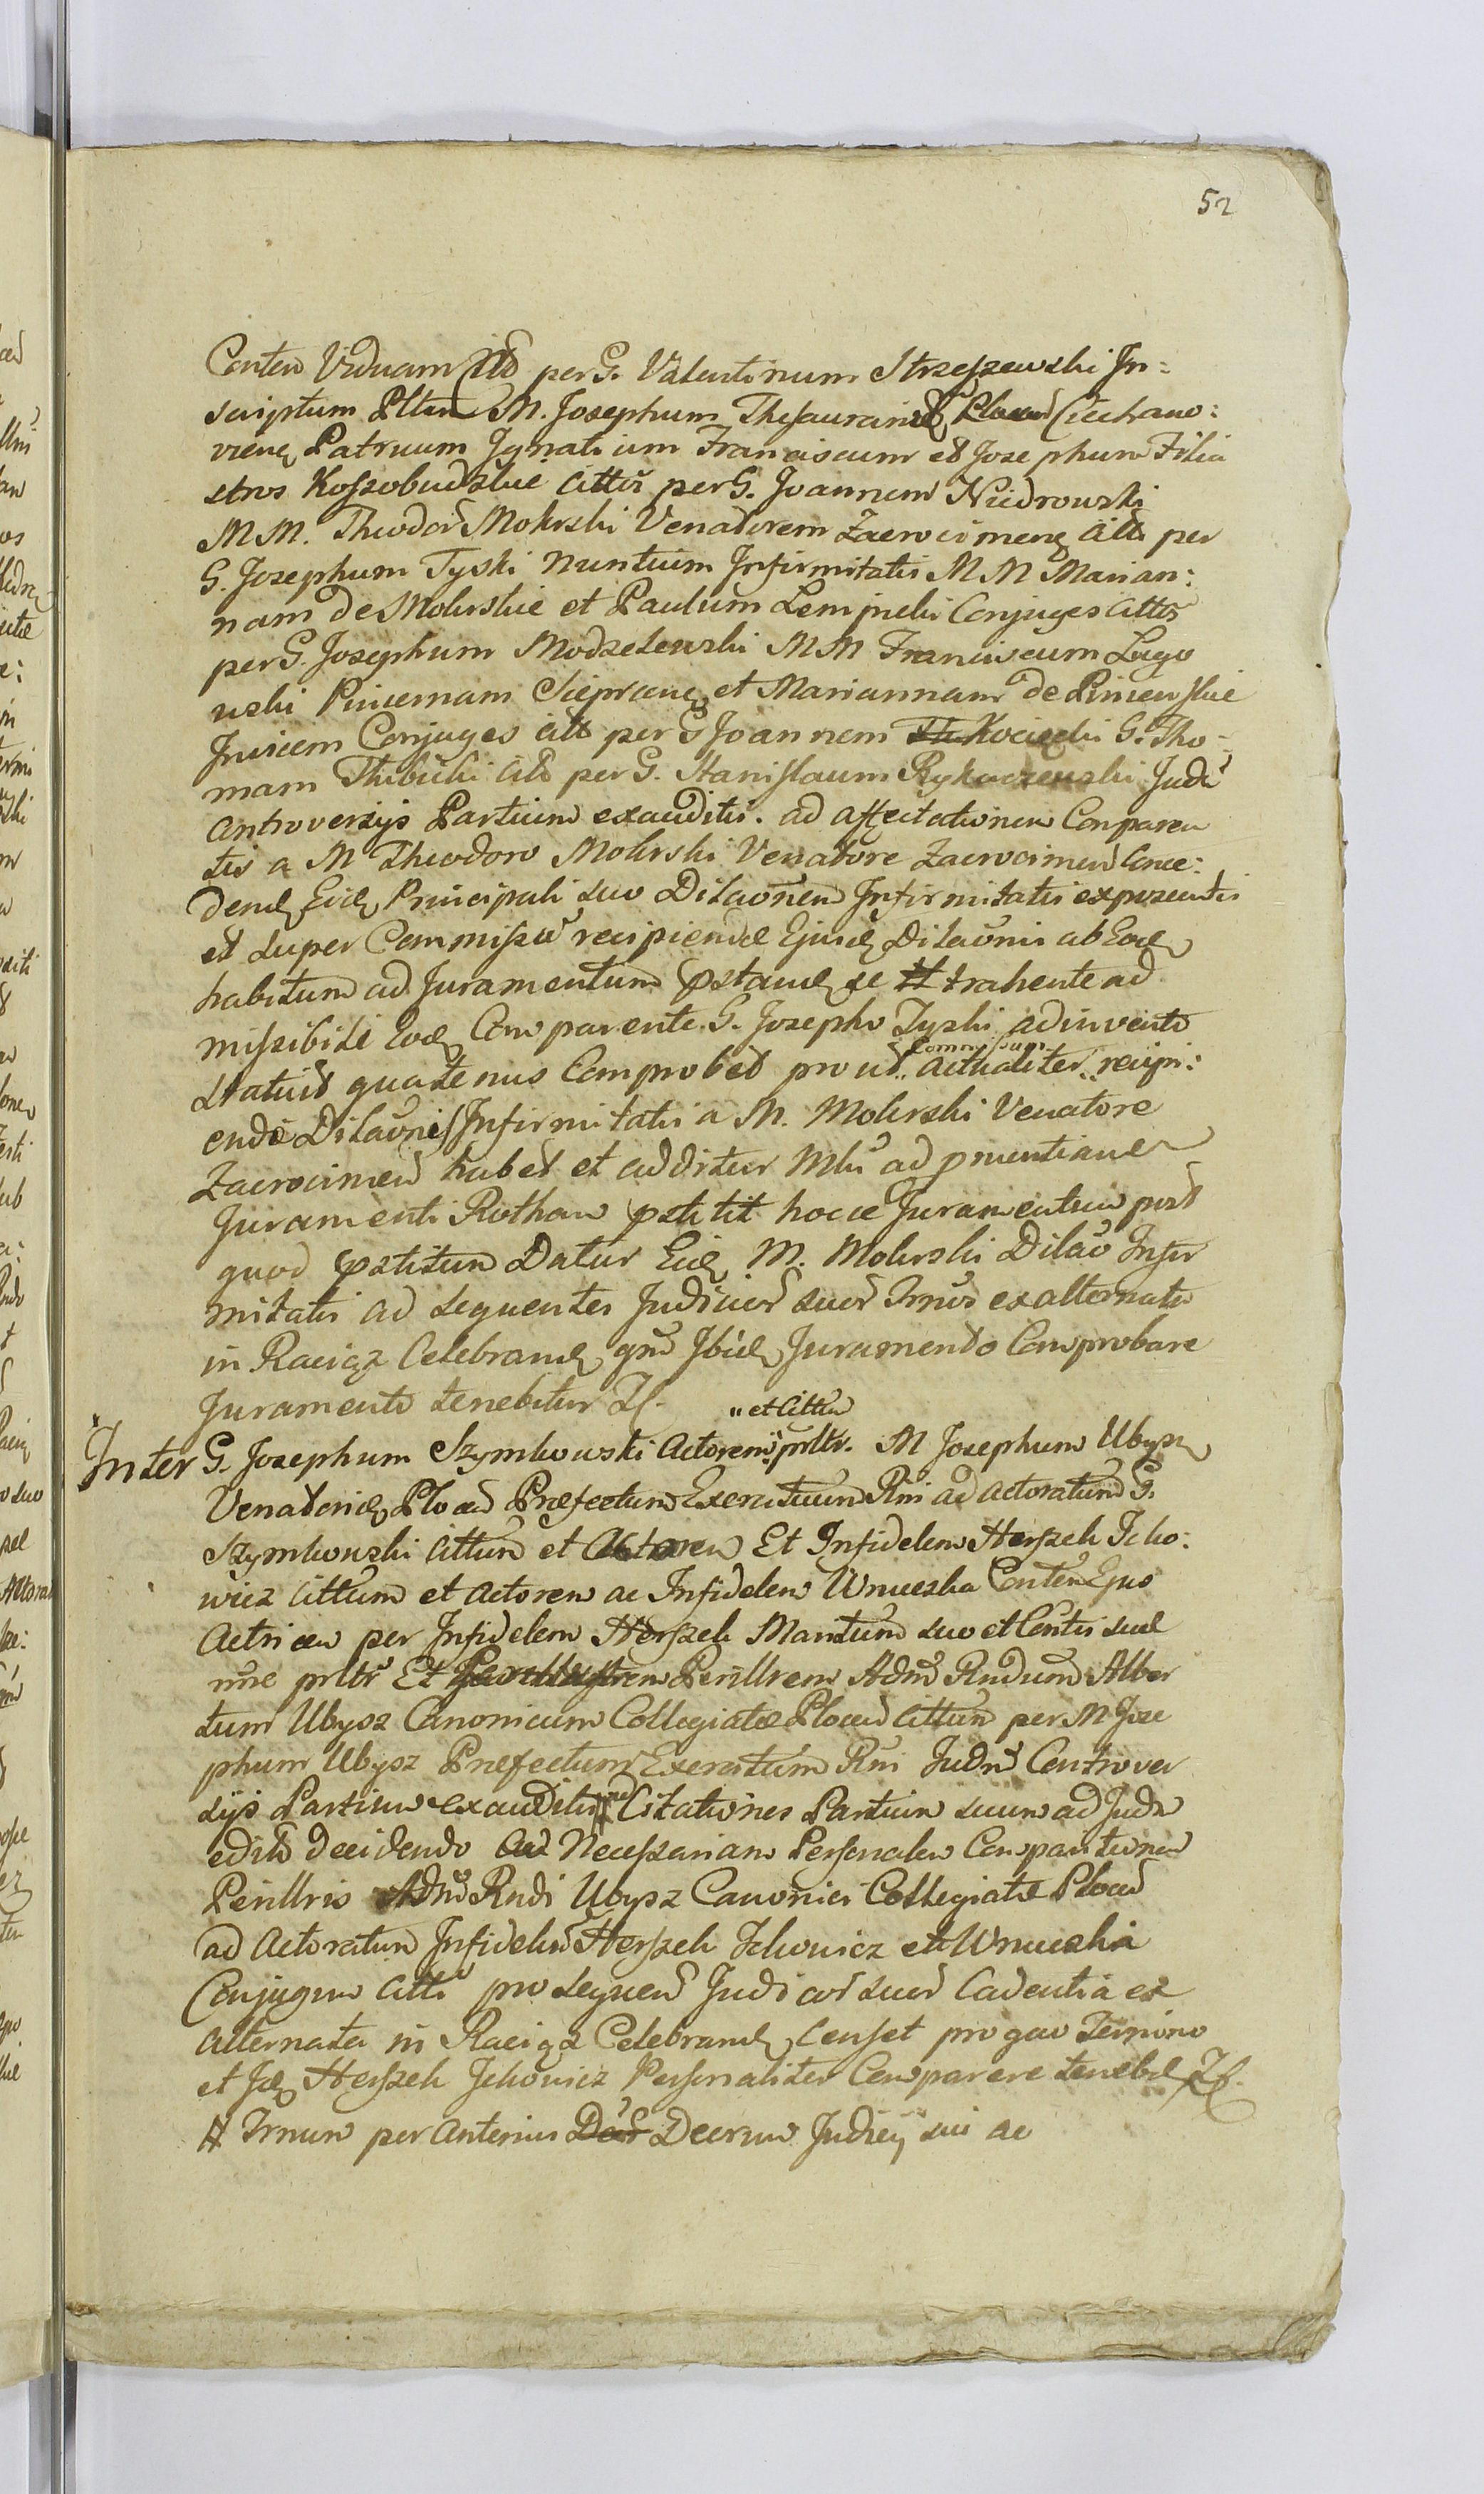 52
Conten Viduam Citt per G. Valentinum Strzeszewski In=
scriptum Pltem M. Josephum Thesauraride Ciechano:
viene Patruum Ignatium Franciscum et Josephum Filia
stros Kossobudzkie Cittos per G. Joannem Niedrowski
MM. Theodor Mokrski Venatorem Zacrocimene Citt per
G. Josephum Tyski Nuntium Infirmitatis MM Marian:
nam de Mokrskie et Paulum Lempicki Conjuges Cittos
per G. Josephum Modzelewski MM Franciscum Lego
wski Pincernam Sieprcene et Mariannam de
Invicem Conjuges Citt per G Joannem Kocięcki G. Tho-
mam Thubicki Citt per G. Stanislaum Rykaczewski Judi
Controversijs Partium exauditis. ad affectationem Comparen
tis a M Theodoro Mokrski Venatore Zacrocimen Conce:
dend Eid Principali suo Dilaonem Infirmitatis exponentis
et super Commisso recipiendae Ejusd Dilaonis ab Eod
habitum ad Juramentum pstand se trahente ad
missibili Eod Comparente G. Josepho Tyski adinvento
statuit quatenus Comprobet prout Commissum actualiter recipi:
endi Dilaonis Infirmitatis a M. Mokrski Venatore
Zacrocimen habet et additur Mlri ad pnuntiand
Juramenti Rotham pstitit hocce Juramentum post
quod pstitum Datur Eid M. Mokrski Dilao Infir
mitatis ad sequentes Judicior suor Trnos ex alternata
in Raciąz Celebrand qm Ibid Juramento Comprobare
Juramento tenebitur
Inter G. Josephum Szymkowski Actorem et Cittum prltr. M Josephum Ubysz
Venatorid Plocen Praefectum Exercituum Rni ad Actoratum G.
Szymkowski Cittum et Actorem Et Infidelem Herszek Icko:
wicz Cittum et Actorem ac Infidelem Wnuczka Conten Ejus
Actricem per Infidelem Herszek Maritum suo et Contis suae
nne prltr Et Perillrem Adm Rndum Alber
tum Ubysz Canonicum Collegiatae Plocen Cittum per M Jose
phum Ubysz Praefectum Exercituum Rni Judm Controver
sijs Partium exauditis # Citationes Partium suum ad Judm
edito Decidendo Ad Necessariam Personalem Comparitionem
Perillris Adm Rndi Ubysz Canonici Collegiatae Plocen
ad Actoratum Infidelium Herszek Ickowicz et Wnuczka
Conjugum Citti pro sequen Judicior suor Cadentia ex
alternata in Raciąz Celebrand Censet pro quo Termino
et Id Herszek Ickowicz Personaliter Comparere teneb
# Trnum per anterius Decrum Judicij sui ac